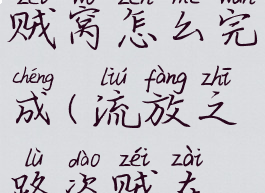 zéi wō zěn me wán
贼窝怎么完
chéng liú fàng zhī
成(流放之
lù dào zéi zài
路盗贼在